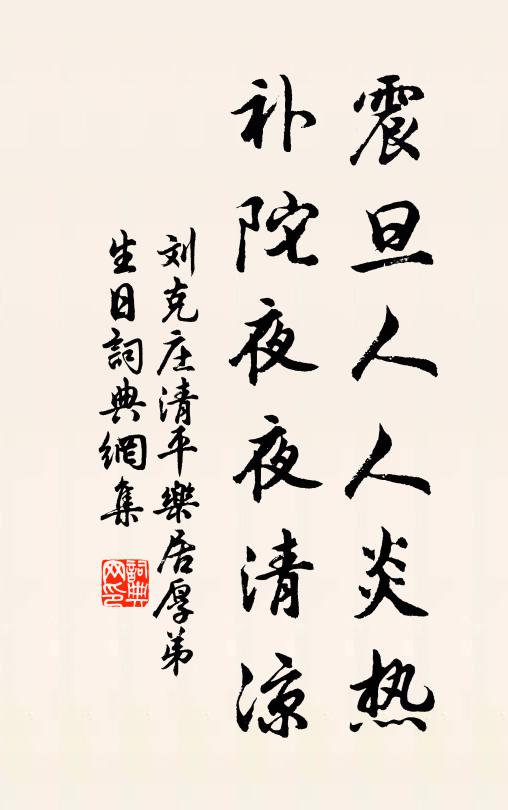 震旦人人炎热
补陀夜夜清凉
刘克庄清平樂居厚弟
生日詞典網集
詞典
网印